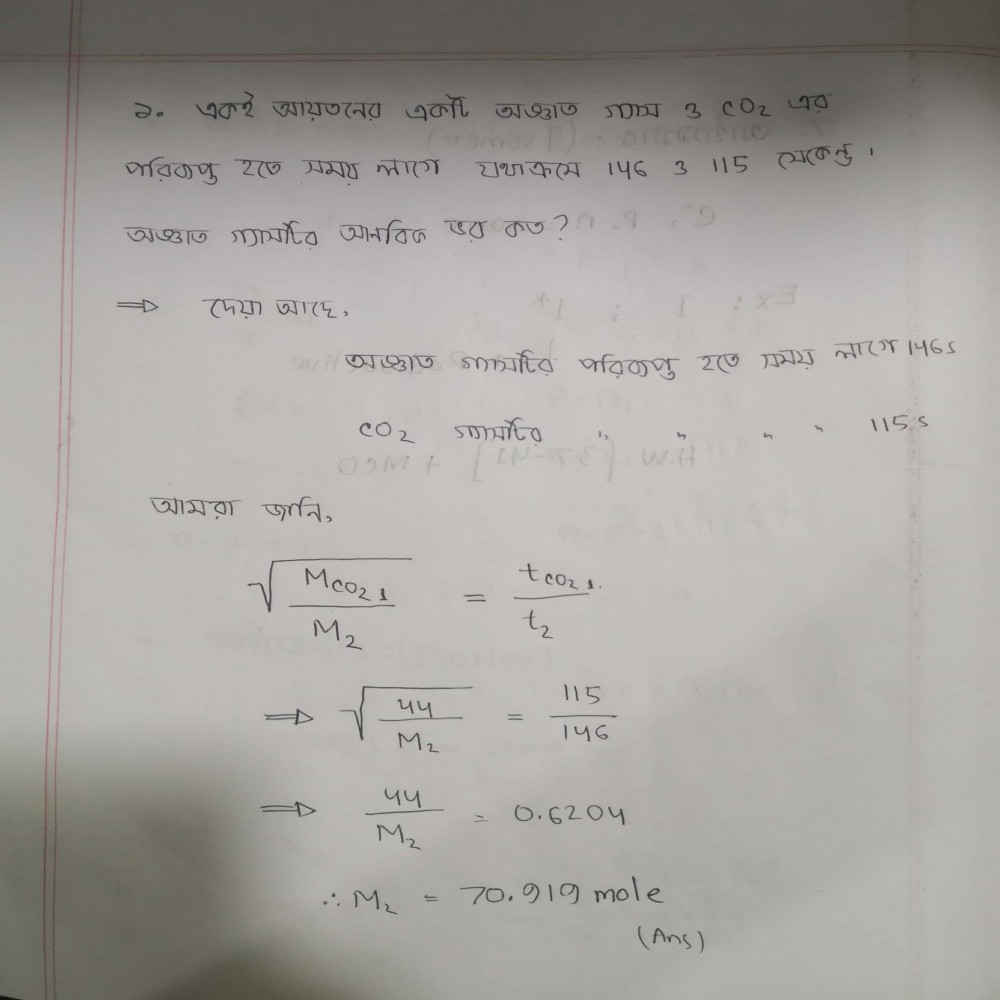 ১. একই আয়তনের একটি অজ্ঞাত গ্যাস ও CO2 এর
পরিব্যপ্ত হতে সময় লাগে যথাক্রমে 146 ও 115 সেকেন্ড।
অজ্ঞাত গ্যাসটির আনবিক ভর কত?
⇒ দেয়া আছে,
অজ্ঞাত গ্যাসটির পরিব্যপ্ত হতে সময় লাগে 146s
CO2 গ্যাসটির " " " " 115s
আমরা জানি,
√(MCO2 1 / M2) = tCO2 1. / t2
⇒ √(44 / M2) = 115 / 146
⇒ 44 / M2 = 0.6204
∴ M2 = 70.919 mole
(Ans)